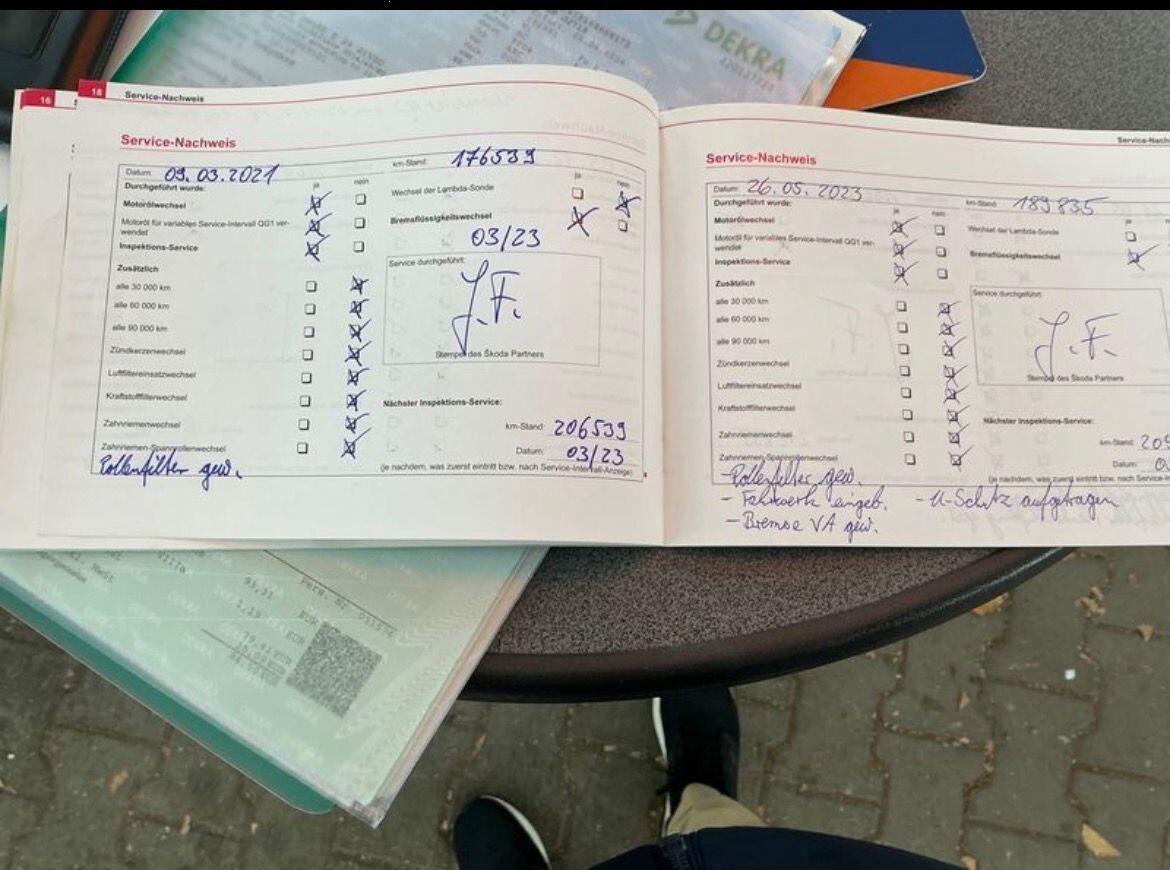 DEKRA
16
18 Service-Nachweis
Service-Nachweis
Datum: 09.03.2021 km-Stand: 176539
Durchgeführt wurde: ja nein
Wechsel der Lambda-Sonde ja nein
Motorölwechsel
Motoröl für variables Service-Intervall QG1 ver-
wendet
Bremsflüssigkeitswechsel
03/23
Inspektions-Service
Zusätzlich
Service durchgeführt:
alle 30 000 km
alle 60 000 km
J.F.
alle 90 000 km
Zündkerzenwechsel
Stempel des Škoda Partners
Luftfiltereinsatzwechsel
Kraftstofffilterwechsel
Nächster Inspektions-Service:
Zahnriemenwechsel
km-Stand: 206539
Zahnriemen-Spannrollenwechsel
Datum: 03/23
(je nachdem, was zuerst eintritt bzw. nach Service-Intervall-Anzeige)
Pollenfilter gew.
Service-Nachweis
Datum: 26.05.2023 km-Stand: 189835
Durchgeführt wurde: ja nein
Wechsel der Lambda-Sonde ja
Motorölwechsel
Motoröl für variables Service-Intervall QG1 ver-
wendet
Bremsflüssigkeitswechsel
Inspektions-Service
Zusätzlich
Service durchgeführt:
alle 30 000 km
alle 60 000 km
J.F.
alle 90 000 km
Zündkerzenwechsel
Stempel des Škoda Partners
Luftfiltereinsatzwechsel
Kraftstofffilterwechsel
Nächster Inspektions-Service:
Zahnriemenwechsel
km-Stand:
Zahnriemen-Spannrollenwechsel
Datum:
(je nachdem, was zuerst eintritt bzw. nach Service-In
- Pollenfilter gew.
- Fahrwerk eingeb. - U-Schutz aufgetragen
- Bremse VA gew.
MwSt
93,31 EUR
1,19 EUR